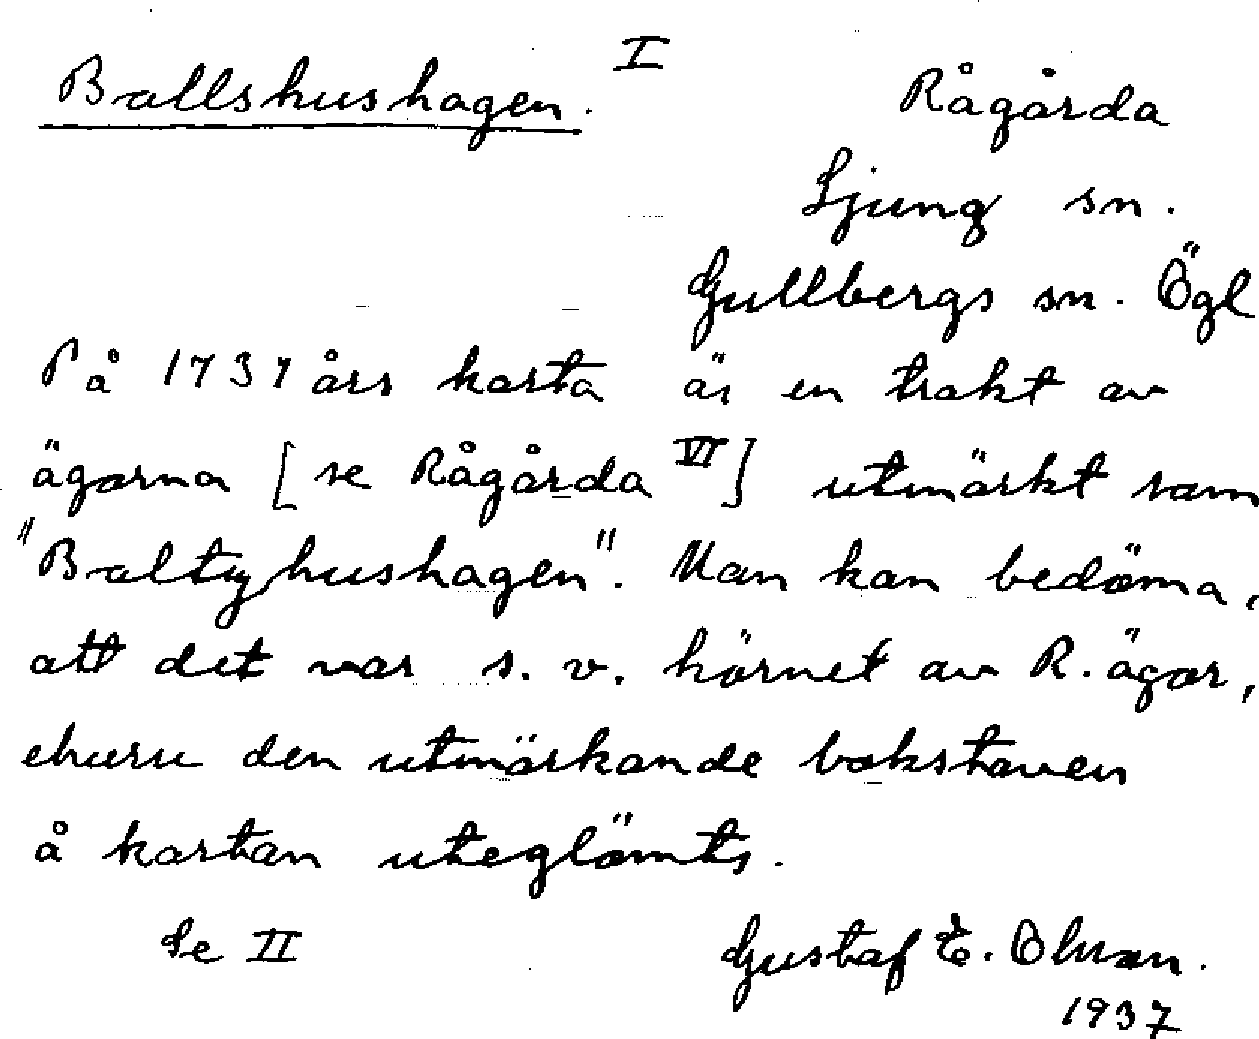 Ballshushagen. I Rågårda
Ljung sn.
Gullbergs sn. Ögl
På 1737 års karta är en trakt av
ägorna [se Rågårda VI] utmärkt som
"Baltzhushagen". Man kan bedöma,
att det var s.v. hörnet av R. ägor,
ehuru den utmärkande bokstaven
å kartan uteglömts.
Se II Gustaf E. Olsson.
1937